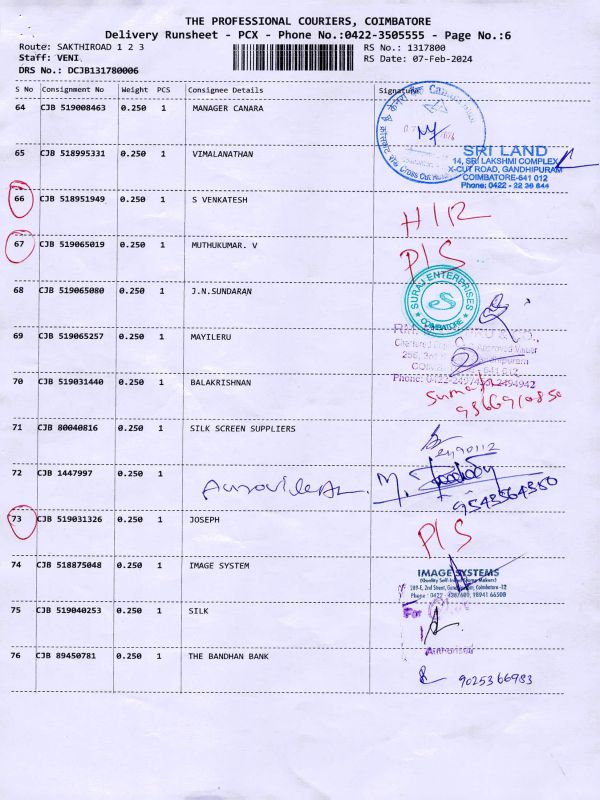 THE PROFESSIONAL COURIERS, COIMBATORE
Delivery Runsheet - PCX - Phone No.:0422-3505555 - Page No.:6
Route: SAKTHIROAD 1 2 3
RS No.: 1317800
Staff: VENI
RS Date: 07-Feb-2024
DRS No.: DCJB131780006
S No Consignment No Weight PCS Consignee Details Signature
64 CJB 519008463 0.250 1 MANAGER CANARA
65 CJB 518995331 0.250 1 VIMALANATHAN
Cross Cut
SRI LAND
14, SRI LAKSHMI COMPLEX
X-CUT ROAD, GANDHIPURAM
COIMBATORE-641 012
Phone: 0422 - 22 36 844
66 CJB 518951949 0.250 1 S VENKATESH
H/R
67 CJB 519065019 0.250 1 MUTHUKUMAR. V
P/S
68 CJB 519065080 0.250 1 J.N.SUNDARAN
SURAJ ENTERPRISES
COIMBATORE
69 CJB 519065257 0.250 1 MAYILERU
Chartered Approved Valuer
70 CJB 519031440 0.250 1 BALAKRISHNAN
71 CJB 80040816 0.250 1 SILK SCREEN SUPPLIERS
72 CJB 1447997 0.250 1
9543564350
73 CJB 519031326 0.250 1 JOSEPH
P/S
74 CJB 518875048 0.250 1 IMAGE SYSTEMS
IMAGE SYSTEMS
75 CJB 519040253 0.250 1 SILK
For
76 CJB 89450781 0.250 1 THE BANDHAN BANK
9025366983